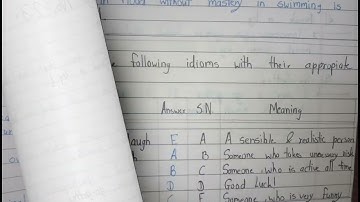 without mastery in swimming is
following idioms with their appropiate
Answer S.N Meaning
laugh E A A sensible & realistic person
A B Someone who takes unnecessary risks
B C Someone who is active all time
D D Good luck!
C E Someone who is very funny